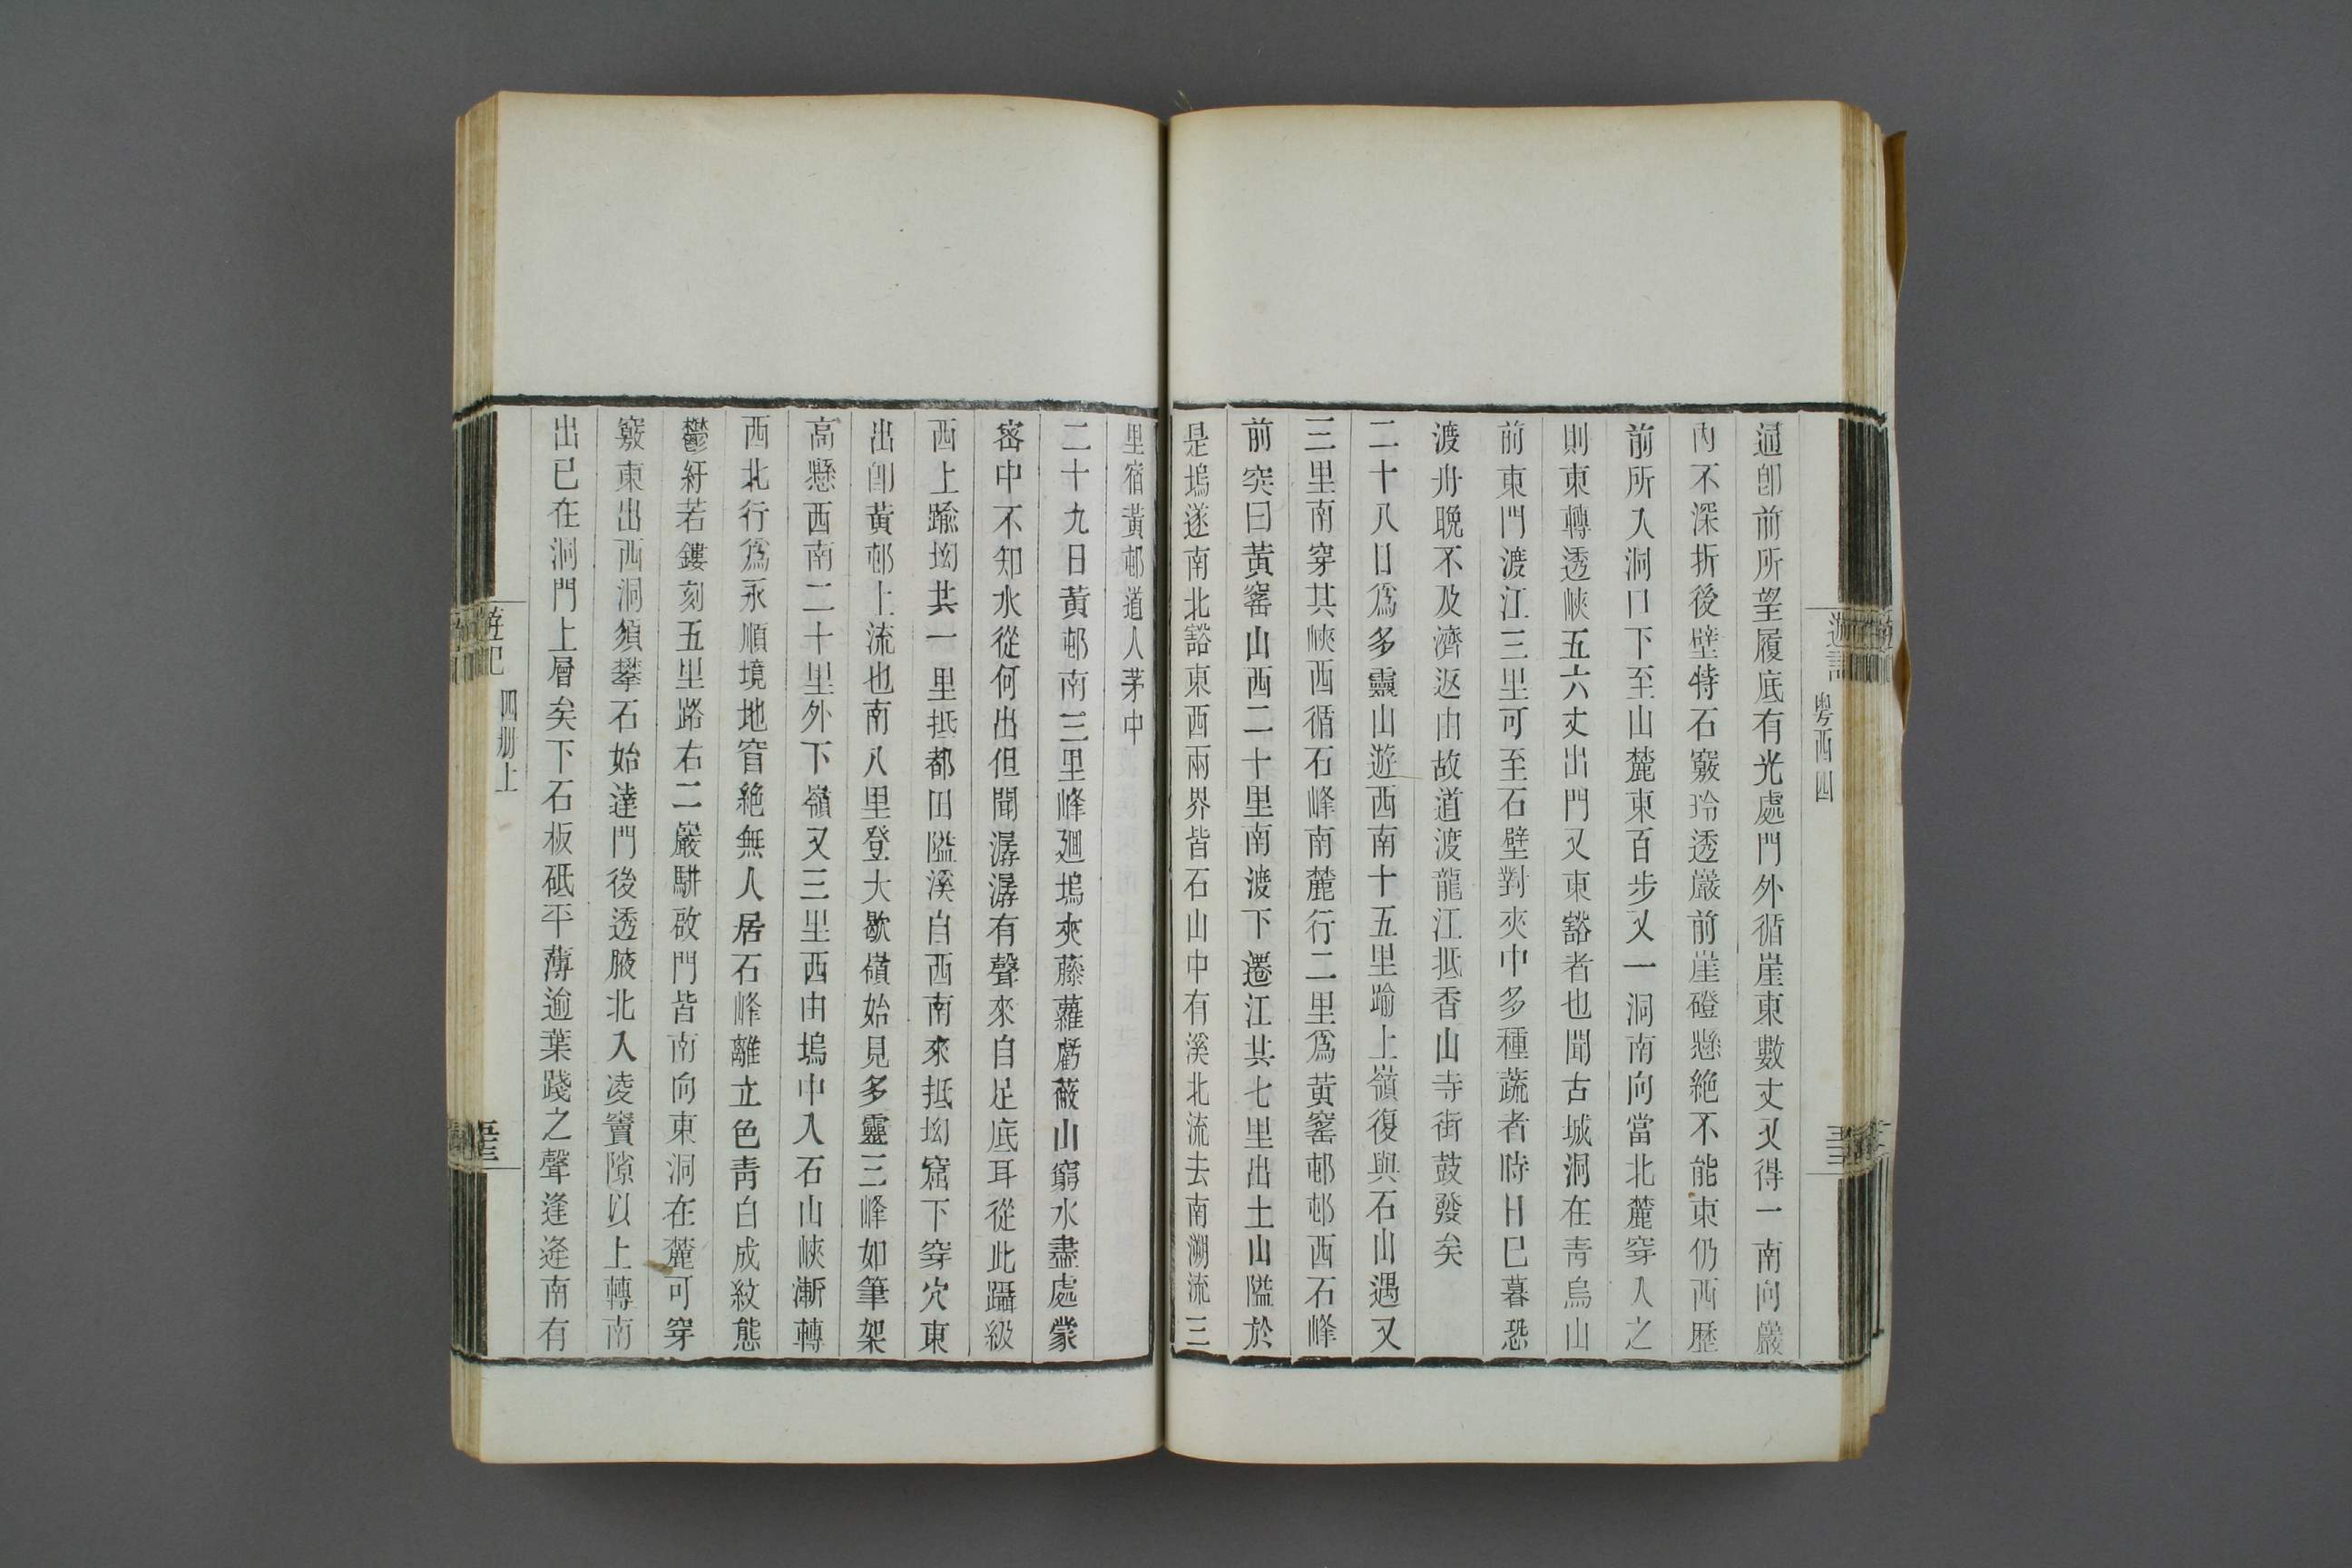 遊記
粤西四
逼卽前所望履底有光處門外循崖東數丈又得一南向巖
內不深折後壁特石竅玲透巖前崖磴懸絶不能東仍西歷
前所入洞口下至山麓東百步又一洞南向當北麓穿入之
則東轉透峽五六丈出門又東豁者也聞古城洞在靑烏山
前東門渡江三里可至石壁對夾中多種蔬者時日已暮恐
渡舟晩不及濟返由故道渡龍江抵香山寺街鼓發矣
二十八日爲多靈山遊西南十五里踰上嶺復與石山遇又
三里南穿其峽西循石峰南麓行二里爲黃窰邨邨西石峰
前突曰黃窰山西二十里南渡下遷江其七里出土山隘於
是塢遂南北豁東西兩界皆石山中有溪北流去南溯流三
里宿黃邨道人茅中
二十九日黃邨南三里峰廻塢夾藤蘿虧蔽山窮水盡處蒙
密中不知水從何出但聞潺潺有聲來自足底耳從此躡級
西上踰坳共一里抵都田隘溪自西南來抵坳窟下穿穴東
出卽黃邨上流也南八里登大歇嶺始見多靈三峰如筆架
高懸西南二十里外下嶺又三里西由塢中入石山峽漸轉
西北行爲永順境地窅絶無人居石峰離立色靑白成紋態
鬱紆若鏤刻五里路右二巖駢啟門皆南向東洞在麓可穿
竅東出西洞須攀石始達門後透腋北入凌竇隙以上轉南
出已在洞門上層矣下石板砥平薄逾葉踐之聲逢逢南有
遊記
四册上